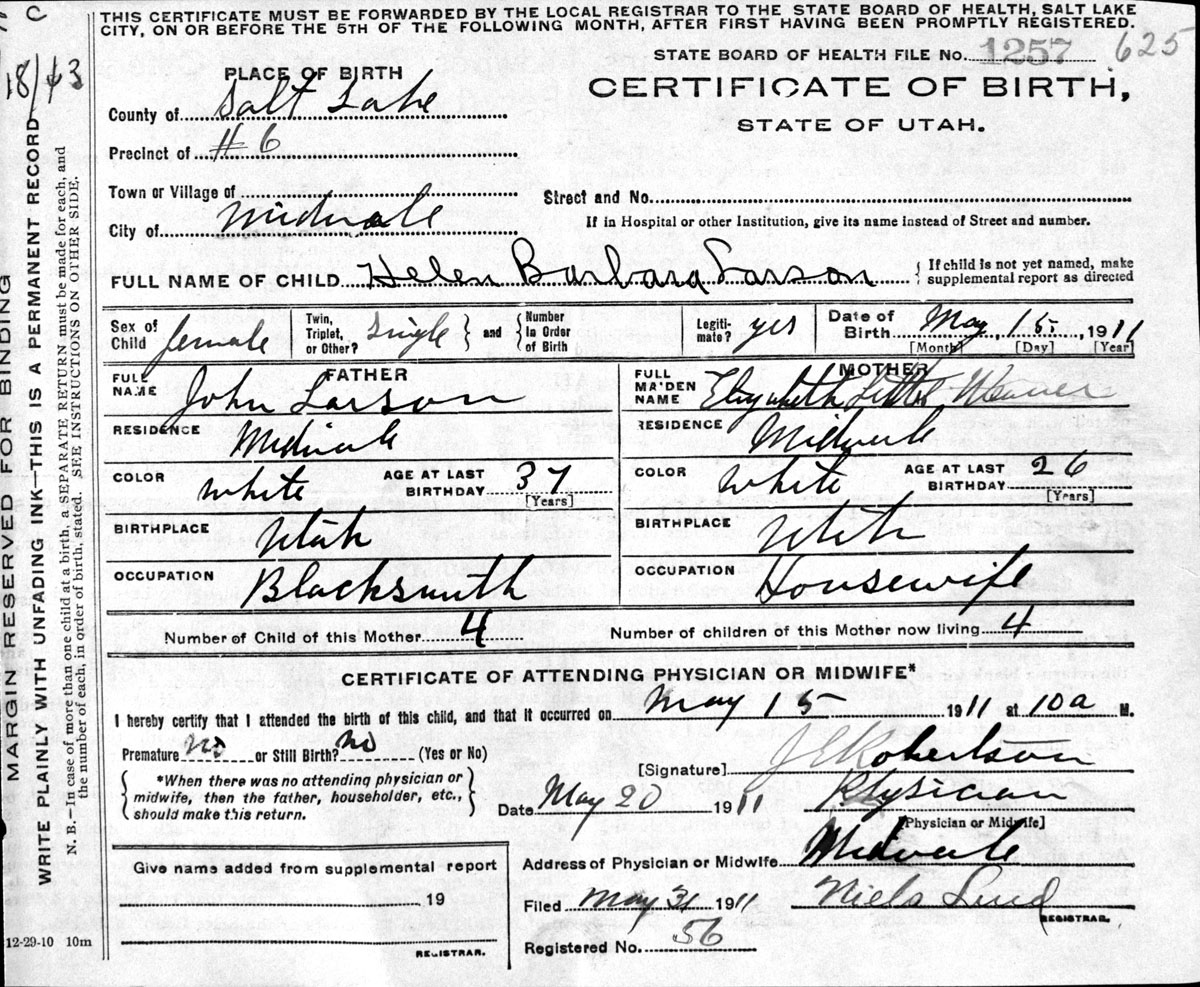 THIS CERTIFICATE MUST BE FORWARDED BY THE LOCAL REGISTRAR TO THE STATE BOARD OF HEALTH, SALT LAKE
CITY, ON OR BEFORE THE 5TH OF THE FOLLOWING MONTH, AFTER FIRST HAVING BEEN PROMPTLY REGISTERED.
STATE BOARD OF HEALTH FILE No. 1257 625
CERTIFICATE OF BIRTH,
STATE OF UTAH.
PLACE OF BIRTH
County of Salt Lake
Precinct of #6
Town or Village of
Street and No.
City of Midvale
If in Hospital or other Institution, give its name instead of Street and number.
FULL NAME OF CHILD Helen Barbara Larson { If child is not yet named, make
supplemental report as directed
Sex of Child female Twin, Triplet, or Other? Single } and { Number in Order of Birth Legiti-mate? yes Date of Birth May 15, 1911
[Month] [Day] [Year]
FATHER
FULL NAME John Larson
RESIDENCE Midvale
COLOR white AGE AT LAST BIRTHDAY 37 [Years]
BIRTHPLACE Utah
OCCUPATION Blacksmith
MOTHER
FULL MAIDEN NAME Elizabeth Weaver
RESIDENCE Midvale
COLOR white AGE AT LAST BIRTHDAY 26 [Years]
BIRTHPLACE Utah
OCCUPATION Housewife
Number of Child of this Mother 4 Number of children of this Mother now living 4
CERTIFICATE OF ATTENDING PHYSICIAN OR MIDWIFE*
I hereby certify that I attended the birth of this child, and that it occurred on May 15 1911 at 10 a M.
Premature no or Still Birth? no (Yes or No)
{ *When there was no attending physician or
midwife, then the father, householder, etc.,
should make this return. }
[Signature] J E Robertson
Date May 20 1911 Physician
[Physician or Midwife]
Address of Physician or Midwife Midvale
Filed May 31 1911 Niels Lind
REGISTRAR.
Registered No. 56
Give name added from supplemental report
19
REGISTRAR.
12-29-10 10m
MARGIN RESERVED FOR BINDING
WRITE PLAINLY WITH UNFADING INK—THIS IS A PERMANENT RECORD
N. B.—In case of more than one child at a birth, a SEPARATE RETURN must be made for each, and
the number of each, in order of birth, stated. SEE INSTRUCTIONS ON OTHER SIDE.